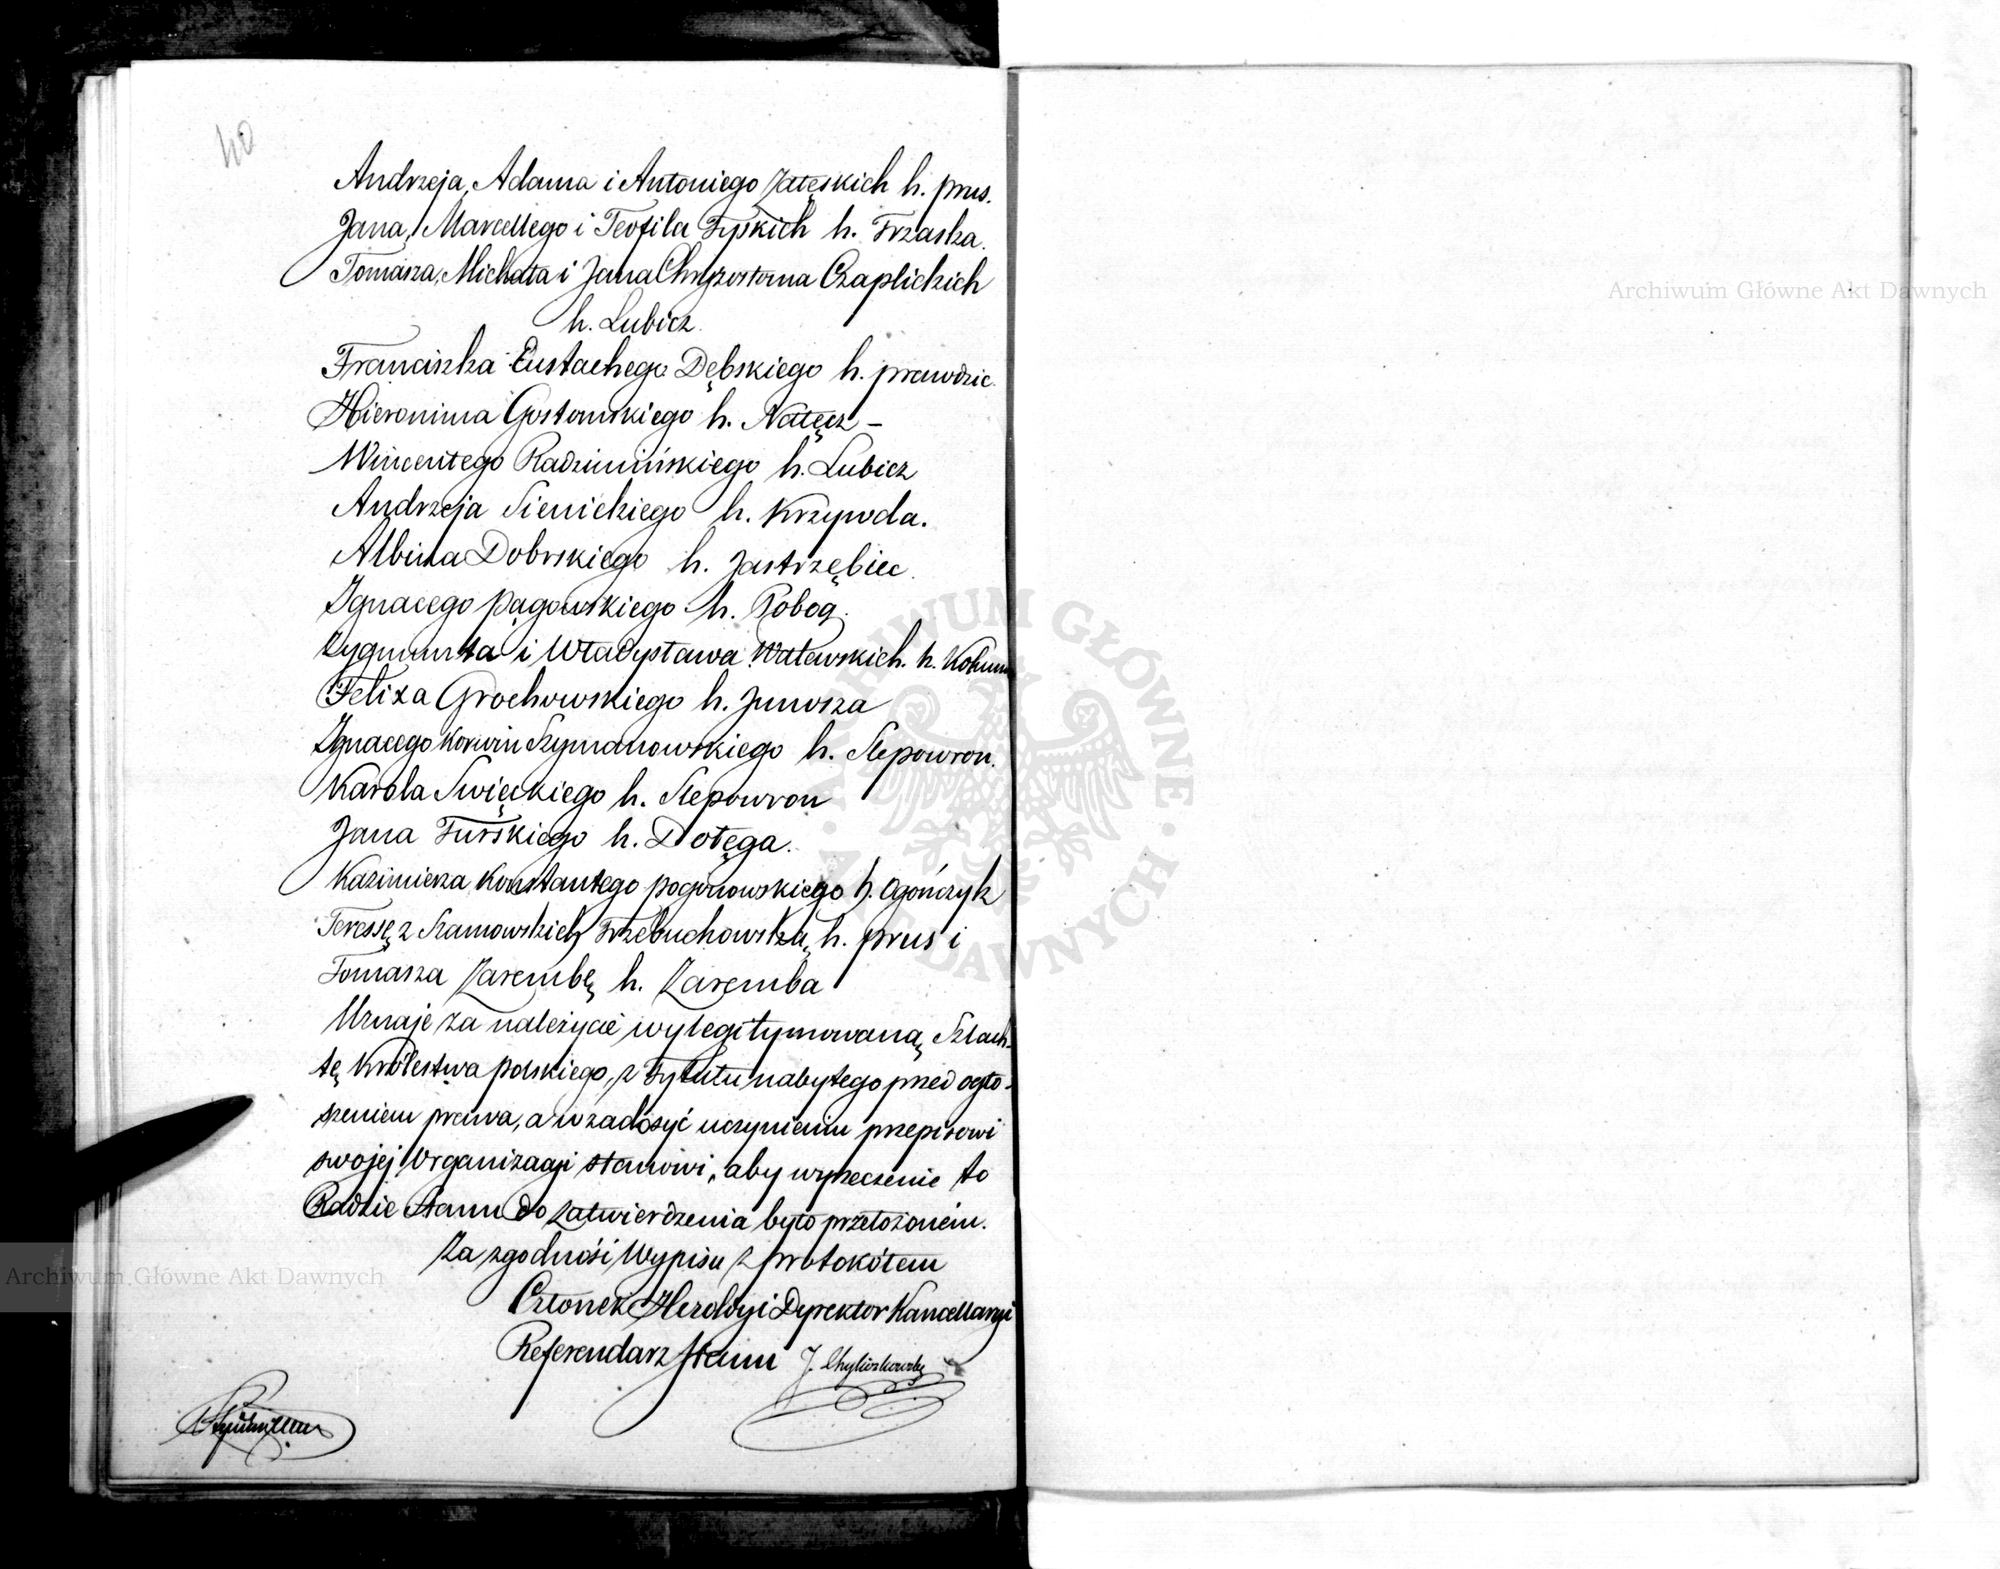 40
Andrzeja, Adama i Antoniego Załęskich h. prus.
Jana, Marcellego i Teofila Łypskich h. Trzaska.
Tomasza, Michała i Jana Chryzostoma Czaplickich
h. Lubicz.
Franciszka Eustachego Dębskiego h. prawdzic.
Hieronima Gostomskiego h. Nałęcz –
Wincentego Radzimińskiego h. Lubicz
Andrzeja Sienickiego h. Krzywda.
Albina Dobrskiego h. Jastrzębiec.
Ignacego Pągowskiego h. Pobog.
Zygmunta i Władysława Walewskich h. Kolumn
Felixa Grochowskiego h. Junosza
Ignacego Korwin Szymanowskiego h. Slepowron.
Karola Swięckiego h. Slepowron
Jana Turskiego h. Dołęga.
Kazimierza Konstantego pogonowskiego h. Ogończyk
Teressę z Szamowskich Trzebuchowską h. prus i
Tomasza Zarembę h. Zaremba
Uznaje za należycie wylegitymowaną Szlach-
tę Królestwa polskiego, z Tytułu nabytego przed ogło-
szeniem prawa, a w zadosyć uczynieniu przepisowi
swojej Organizacyi stanowi, aby wyrzeczenie to
Radzie Stanu do zatwierdzenia było przełożoném.
Za zgodność Wypisu z protokółem
Członek Heroldyi Dyrektor Kancellaryi
Referendarz Stanu J. Chyliczkowski
Archiwum Główne Akt Dawnych
Archiwum Główne Akt Dawnych
ARCHIWUM GŁÓWNE AKT DAWNYCH